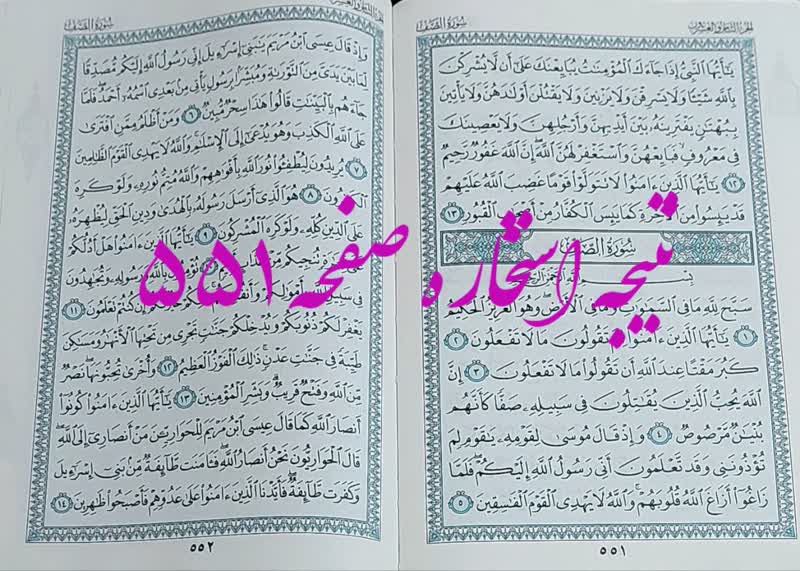 الجزء الثامن والعشرون
سورة الصف
يَٰٓأَيُّهَا ٱلنَّبِىُّ إِذَا جَآءَكَ ٱلْمُؤْمِنَٰتُ يُبَايِعْنَكَ عَلَىٰٓ أَن لَّا يُشْرِكْنَ
بِٱللَّهِ شَيْـًٔا وَلَا يَسْرِقْنَ وَلَا يَزْنِينَ وَلَا يَقْتُلْنَ أَوْلَٰدَهُنَّ وَلَا يَأْتِينَ
بِبُهْتَٰنٍ يَفْتَرِينَهُۥ بَيْنَ أَيْدِيهِنَّ وَأَرْجُلِهِنَّ وَلَا يَعْصِينَكَ
فِى مَعْرُوفٍ فَبَايِعْهُنَّ وَٱسْتَغْفِرْ لَهُنَّ ٱللَّهَ إِنَّ ٱللَّهَ غَفُورٌ رَّحِيمٌ
١٢ يَٰٓأَيُّهَا ٱلَّذِينَ ءَامَنُوا۟ لَا تَتَوَلَّوْا۟ قَوْمًا غَضِبَ ٱللَّهُ عَلَيْهِمْ
قَدْ يَئِسُوا۟ مِنَ ٱلْءَاخِرَةِ كَمَا يَئِسَ ٱلْكُفَّارُ مِنْ أَصْحَٰبِ ٱلْقُبُورِ ١٣
سُورَةُ الصَّفِّ
نتیجه استخاره صفحه ۵۵۱
سَبَّحَ لِلَّهِ مَا فِى ٱلسَّمَٰوَٰتِ وَمَا فِى ٱلْأَرْضِ وَهُوَ ٱلْعَزِيزُ ٱلْحَكِيمُ
١ يَٰٓأَيُّهَا ٱلَّذِينَ ءَامَنُوا۟ لِمَ تَقُولُونَ مَا لَا تَفْعَلُونَ ٢
كَبُرَ مَقْتًا عِندَ ٱللَّهِ أَن تَقُولُوا۟ مَا لَا تَفْعَلُونَ ٣ إِنَّ
ٱللَّهَ يُحِبُّ ٱلَّذِينَ يُقَٰتِلُونَ فِى سَبِيلِهِۦ صَفًّا كَأَنَّهُم
بُنْيَٰنٌ مَّرْصُوصٌ ٤ وَإِذْ قَالَ مُوسَىٰ لِقَوْمِهِۦ يَٰقَوْمِ لِمَ
تُؤْذُونَنِى وَقَد تَّعْلَمُونَ أَنِّى رَسُولُ ٱللَّهِ إِلَيْكُمْ فَلَمَّا
زَاغُوٓا۟ أَزَاغَ ٱللَّهُ قُلُوبَهُمْ وَٱللَّهُ لَا يَهْدِى ٱلْقَوْمَ ٱلْفَٰسِقِينَ ٥
٥٥١
سورة الصف
وَإِذْ قَالَ عِيسَى ٱبْنُ مَرْيَمَ يَٰبَنِىٓ إِسْرَٰٓءِيلَ إِنِّى رَسُولُ ٱللَّهِ إِلَيْكُم مُّصَدِّقًا
لِّمَا بَيْنَ يَدَىَّ مِنَ ٱلتَّوْرَىٰةِ وَمُبَشِّرًۢا بِرَسُولٍ يَأْتِى مِنۢ بَعْدِى ٱسْمُهُۥٓ أَحْمَدُ فَلَمَّا
جَآءَهُم بِٱلْبَيِّنَٰتِ قَالُوا۟ هَٰذَا سِحْرٌ مُّبِينٌ ٦ وَمَنْ أَظْلَمُ مِمَّنِ ٱفْتَرَىٰ
عَلَى ٱللَّهِ ٱلْكَذِبَ وَهُوَ يُدْعَىٰٓ إِلَى ٱلْإِسْلَٰمِ وَٱللَّهُ لَا يَهْدِى ٱلْقَوْمَ ٱلظَّٰلِمِينَ
٧ يُرِيدُونَ لِيُطْفِـُٔوا۟ نُورَ ٱللَّهِ بِأَفْوَٰهِهِمْ وَٱللَّهُ مُتِمُّ نُورِهِۦ وَلَوْ كَرِهَ
ٱلْكَٰفِرُونَ ٨ هُوَ ٱلَّذِىٓ أَرْسَلَ رَسُولَهُۥ بِٱلْهُدَىٰ وَدِينِ ٱلْحَقِّ لِيُظْهِرَهُۥ
عَلَى ٱلدِّينِ كُلِّهِۦ وَلَوْ كَرِهَ ٱلْمُشْرِكُونَ ٩ يَٰٓأَيُّهَا ٱلَّذِينَ ءَامَنُوا۟ هَلْ أَدُلُّكُمْ
تُنجِيكُم مِّنْ ١٠ بِٱللَّهِ وَرَسُولِهِۦ وَتُجَٰهِدُونَ
فِى سَبِيلِ ٱللَّهِ بِأَمْوَٰلِكُمْ وَأَنفُسِكُمْ إِن كُنتُمْ تَعْلَمُونَ ١١
يَغْفِرْ لَكُمْ ذُنُوبَكُمْ وَيُدْخِلْكُمْ جَنَّٰتٍ تَجْرِى مِن تَحْتِهَا ٱلْأَنْهَٰرُ وَمَسَٰكِنَ
طَيِّبَةً فِى جَنَّٰتِ عَدْنٍ ذَٰلِكَ ٱلْفَوْزُ ٱلْعَظِيمُ ١٢ وَأُخْرَىٰ تُحِبُّونَهَا نَصْرٌ
مِّنَ ٱللَّهِ وَفَتْحٌ قَرِيبٌ وَبَشِّرِ ٱلْمُؤْمِنِينَ ١٣ يَٰٓأَيُّهَا ٱلَّذِينَ ءَامَنُوا۟ كُونُوٓا۟
أَنصَارَ ٱللَّهِ كَمَا قَالَ عِيسَى ٱبْنُ مَرْيَمَ لِلْحَوَارِيِّـۧنَ مَنْ أَنصَارِىٓ إِلَى ٱللَّهِ
قَالَ ٱلْحَوَارِيُّونَ نَحْنُ أَنصَارُ ٱللَّهِ فَـَٔامَنَت طَّآئِفَةٌ مِّنۢ بَنِىٓ إِسْرَٰٓءِيلَ
وَكَفَرَت طَّآئِفَةٌ فَأَيَّدْنَا ٱلَّذِينَ ءَامَنُوا۟ عَلَىٰ عَدُوِّهِمْ فَأَصْبَحُوا۟ ظَٰهِرِينَ ١٤
٥٥٢